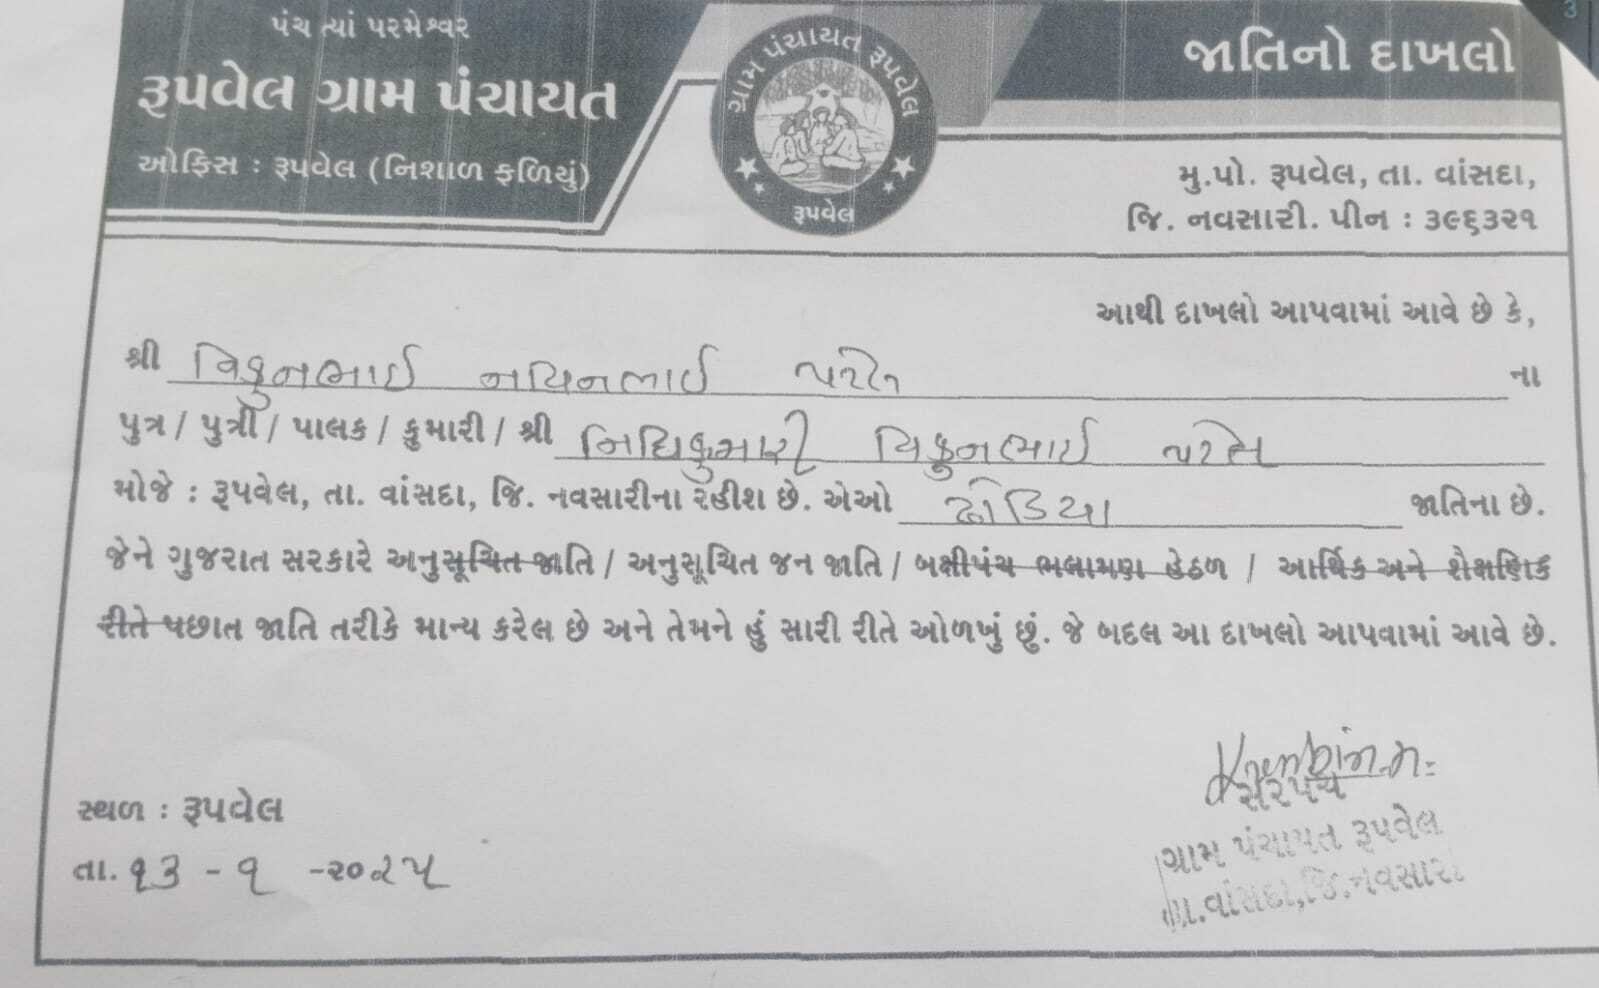 પંચ ત્યાં પરમેશ્વર
રૂપવેલ ગ્રામ પંચાયત
ઓફિસ : રૂપવેલ (નિશાળ ફળિયું)
ગ્રામ પંચાયત રૂપવેલ
રૂપવેલ
જાતિનો દાખલો
મુ.પો. રૂપવેલ, તા. વાંસદા,
જિ. નવસારી. પીન : ૩૯૬૩૨૧
આથી દાખલો આપવામાં આવે છે કે,
શ્રી વિકુનભાઈ નવિનભાઈ પટેલ ના
પુત્ર / પુત્રી / પાલક / કુમારી / શ્રી નિધિકુમારી વિકુનભાઈ પટેલ
મોજે : રૂપવેલ, તા. વાંસદા, જિ. નવસારીના રહીશ છે. એઓ ઢોડિયા જાતિના છે.
જેને ગુજરાત સરકારે અનુસૂચિત જાતિ / અનુસૂચિત જન જાતિ / બક્ષીપંચ ભલામણ હેઠળ / આર્થિક અને શૈક્ષણિક
રીતે પછાત જાતિ તરીકે માન્ય કરેલ છે અને તેમને હું સારી રીતે ઓળખું છું. જે બદલ આ દાખલો આપવામાં આવે છે.
સ્થળ : રૂપવેલ
તા. ૧૩ - ૧ -૨૦૨૫
સરપંચ
ગ્રામ પંચાયત રૂપવેલ
તા.વાંસદા,જિ.નવસારી